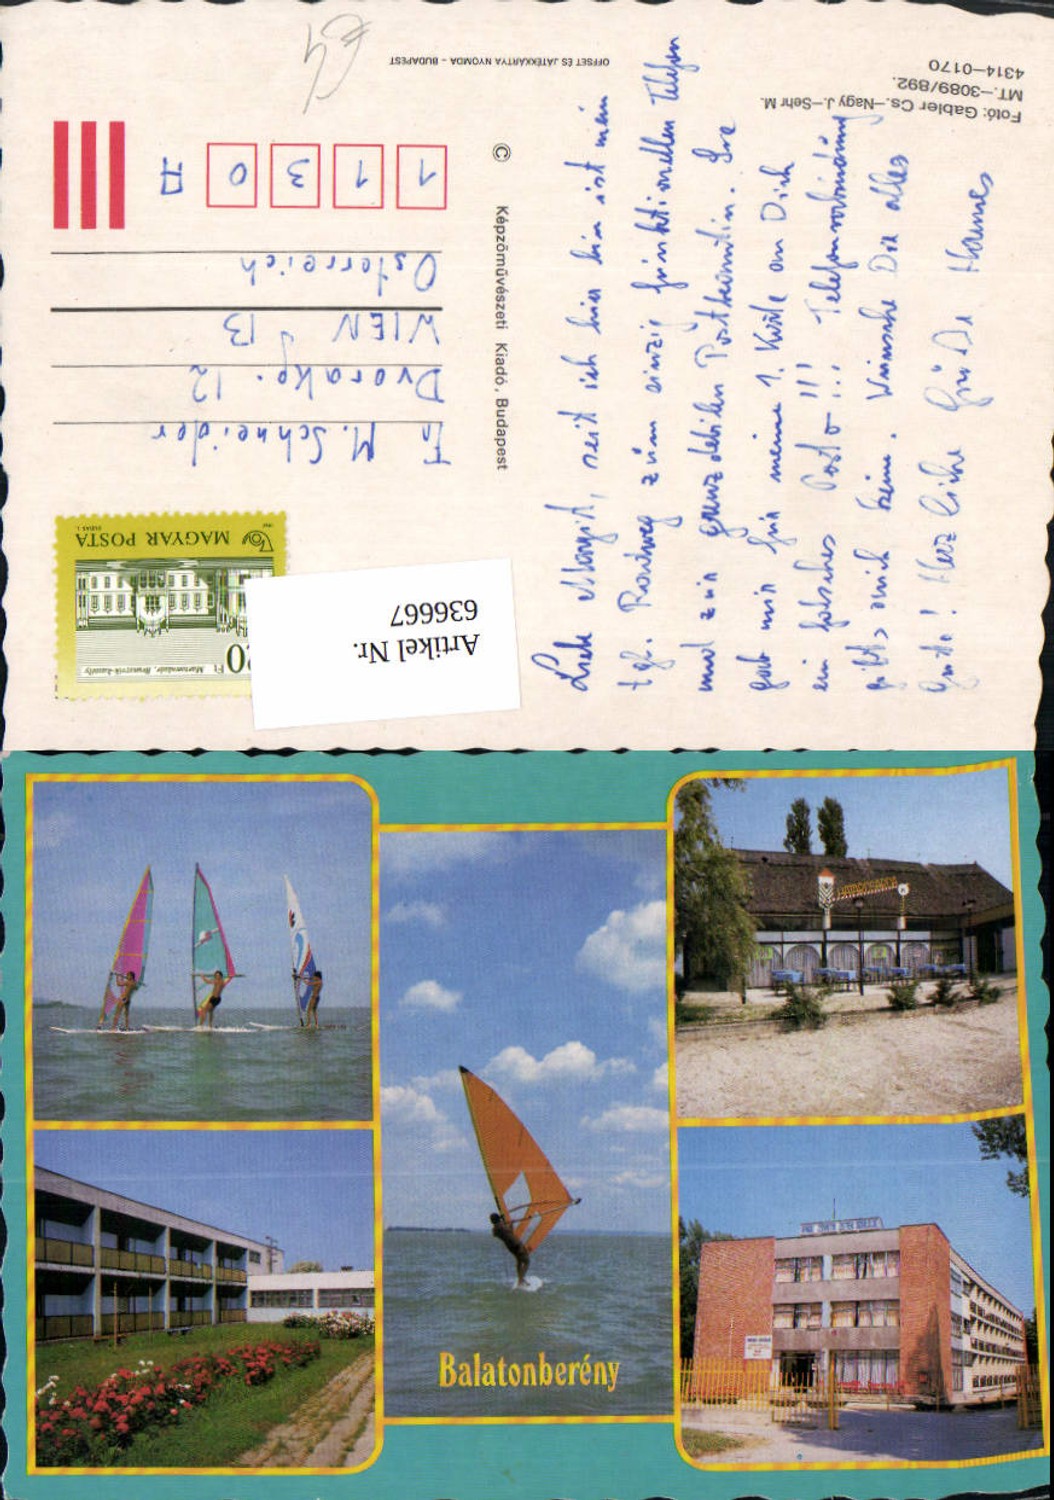 Fotó: Gabler Cs.—Nagy J.—Sehr M.
MT.—3089/892.
4314—0170
OFFSET ÉS JÁTÉKKÁRTYA NYOMDA – BUDAPEST
©
Képzőművészeti Kiadó, Budapest
Liebe Margit, seit ich hier bin ist mein
tgl. Rundweg zum einzig funktionellen Telefon
und zur grenzdebilen Postbeamtin. Sie
gab mir für meine 1. Karte an Dich
ein falsches Porto!!! Telefonverbindung
gibt's auch keine. Wünsche Dir alles
Gute! Herz liche Grüße Hannes
MAGYAR POSTA
20 Ft
Martonvásár, Brunszvik-kastély
Artikel Nr.
636667
Fr M. Schneider
Dvorakg. 12
WIEN 13
Österreich
1 1 3 0
A
HALÁSZCSÁRDA
Balatonberény